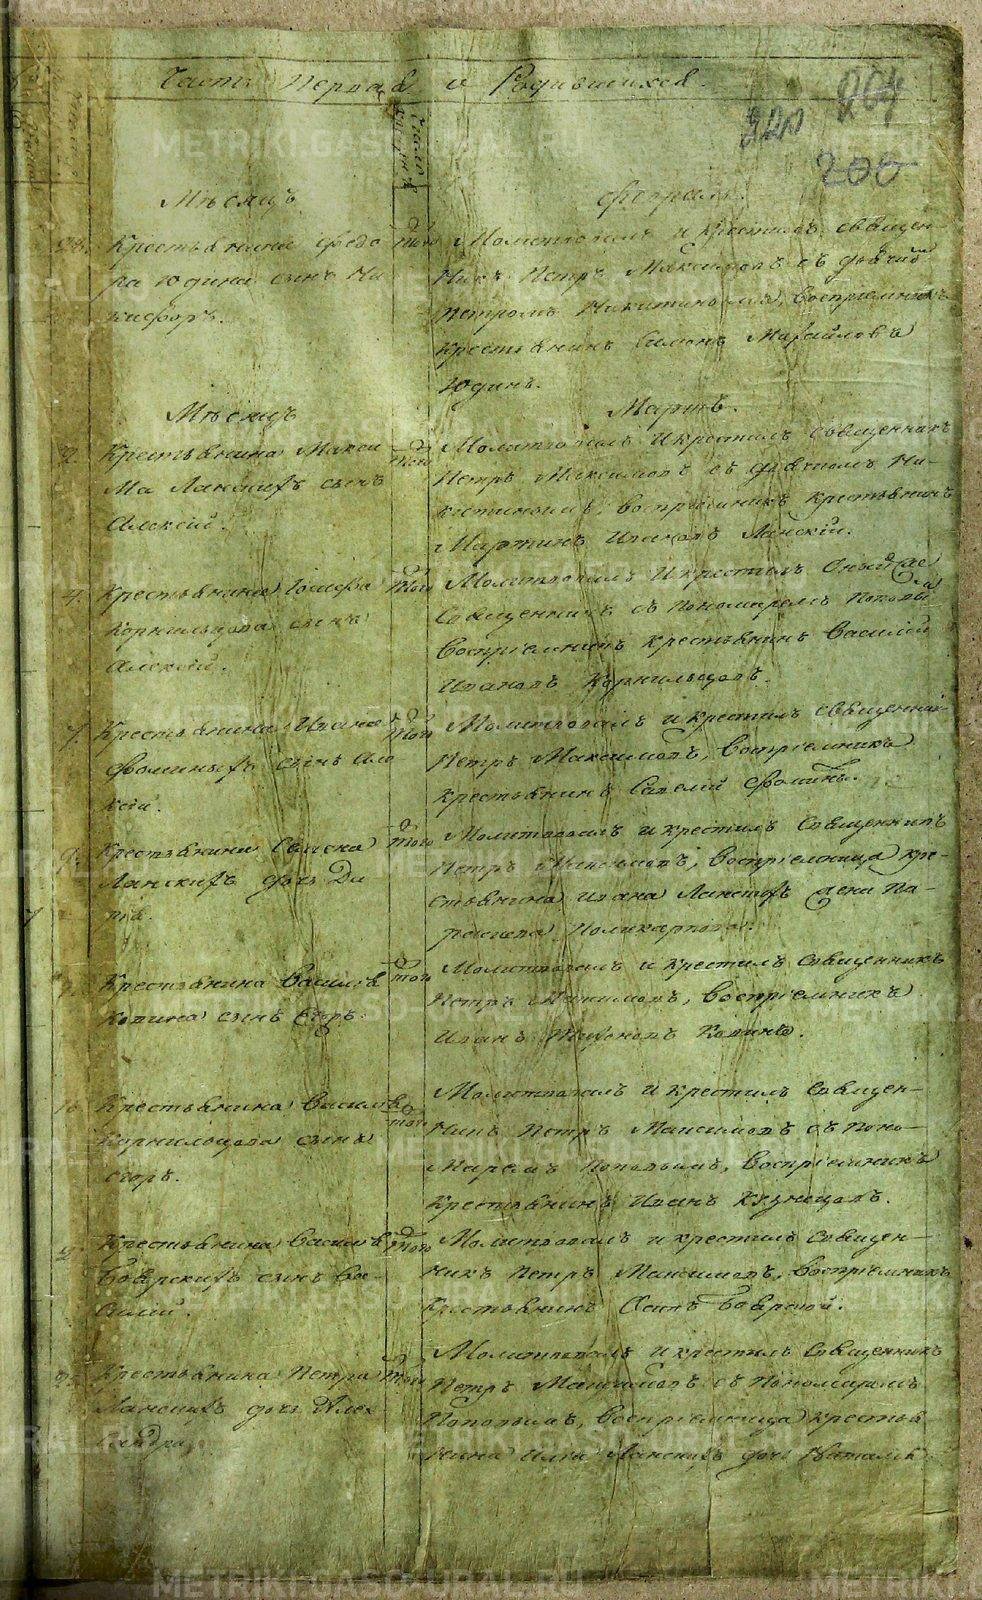 Часть Первая о Родившихся.
Число кре
264
320
200
Мѣсяцъ
Февраль.
Крестьянина Федо
ра Юдина сынъ Ни
кифоръ.
Того
Молитвовалъ и крестилъ священ-
никъ Петръ Максимовъ съ
Петромъ Никитинымъ, Воспріемникъ
крестьянинъ Симонъ Михайловъ
Юдинъ.
Мѣсяцъ
Мартъ.
2.
Крестьянина Макси
ма Ланскихъ сынъ
Алексѣй.
Того
Молитвовалъ и крестилъ священникъ
Петръ Максимовъ съ дьячкомъ Ни-
китинымъ, Воспріемникъ крестьянинъ
Мартинъ Ивановъ Ланскій.
4.
Крестьянина Іосифа
Корнильцова сынъ
Алексѣй.
Того
Молитвовалъ и крестилъ
священникъ съ пономаремъ Поповы
Воспріемникъ крестьянинъ Василій
Ивановъ Корнильцовъ.
7.
Крестьянина Ивана
Фоминыхъ сынъ Але
ксѣй.
Того
Молитвовалъ и крестилъ священник
Петръ Максимовъ, Воспріемникъ
крестьянинъ Савелій Фоминъ.
9.
Крестьянина
Ланскихъ дочь Да
рья.
Того
Молитвовалъ и крестилъ священникъ
Петръ Максимовъ, Воспріемница кре-
стьянина Ивана Ланскихъ жена Па-
раскева Поликарпова.
Крестьянина Василья
Копина сынъ Егоръ.
Того
Молитвовалъ и крестилъ священникъ
Петръ Максимовъ, Воспріемникъ
Иванъ Копинъ.
Крестьянина Василья
Корнильцова сынъ
Егоръ.
Того
Молитвовалъ и крестилъ священ-
никъ Петръ Максимовъ съ поно-
маремъ Поповымъ, Воспріемникъ
крестьянинъ Иванъ Кузнецовъ.
Крестьянина Василья
Боярскихъ сынъ Ва-
силий.
Того
Молитвовалъ и крестилъ священ-
никъ Петръ Максимовъ, Воспріемникъ
крестьянинъ Осипъ Боярской.
Крестьянина Петра
Ланскихъ дочь Алек-
сандра.
Того
Молитвовалъ и крестилъ священникъ
Петръ Максимовъ съ пономаремъ
Поповымъ, Воспріемница крестья
нина Ильи Ланскихъ дочь Наталья